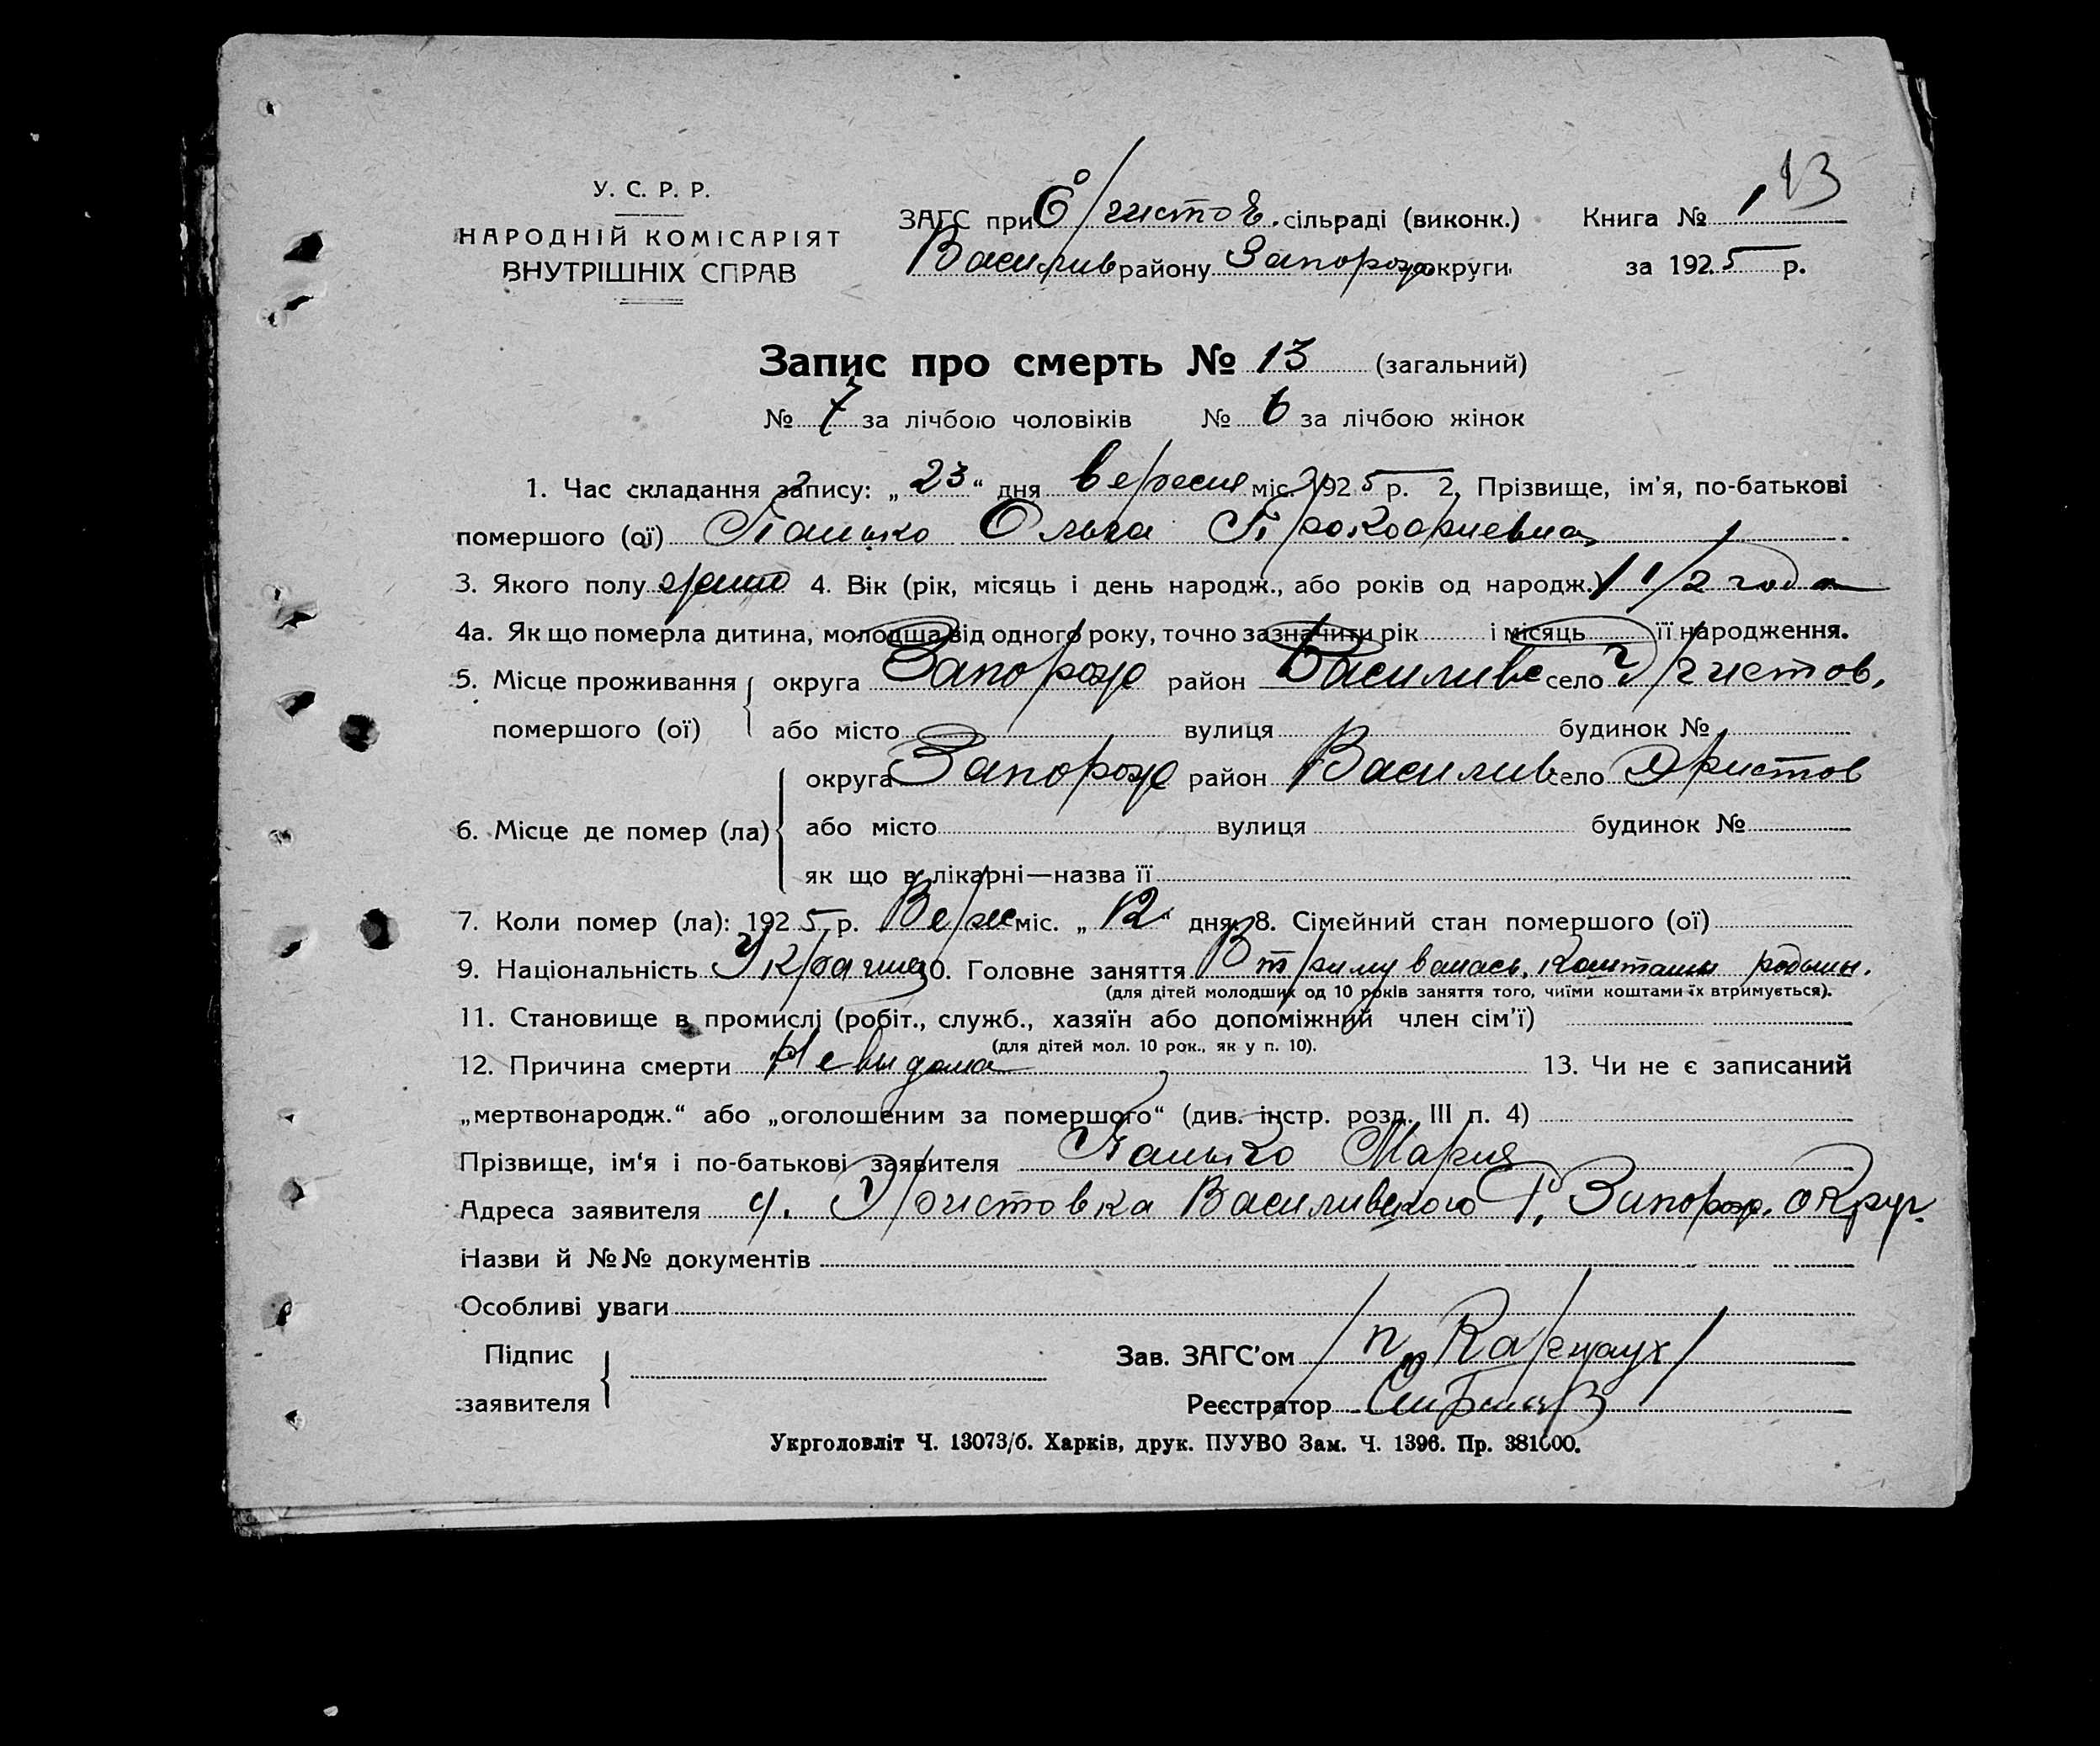 13
У. С. Р. Р.
НАРОДНІЙ КОМІСАРІЯТ
ВНУТРІШНІХ СПРАВ
ЗАГС при сільраді (виконк.) Книга № 1
Василив району Запорож округи за 1925 р.
Запис про смерть № 13 (загальний)
№ 7 за лічбою чоловіків № 6 за лічбою жінок
1. Час складання запису: „ 23 “ дня вересня міс. 1925 р. 2. Прізвище, ім’я, по-батькові
помершого (ої) Панько Ольга Прокофиевна
3. Якого полу 4. Вік (рік, місяць і день народж., або років од народж.) 1 1/2 года
4а. Як що померла дитина, молодша від одного року, точно зазначити рік і місяць її народження.
5. Місце проживання округа Запорож район Василивс село
помершого (ої) або місто вулиця будинок №
округа Запорож район Василив село
6. Місце де помер (ла) або місто вулиця будинок №
як що в лікарні—назва її
7. Коли помер (ла): 1925 р. Верес міс. „ 12 “ дня. 8. Сімейний стан помершого (ої)
9. Національність 10. Головне заняття Втримувалась коштами родыны.
(для дітей молодших од 10 років заняття того, чиїми коштами їх втримується).
11. Становище в промислі (робіт., служб., хазяїн або допоміжний член сім’ї)
(для дітей мол. 10 рок., як у п. 10).
12. Причина смерти Невыдома 13. Чи не є записаний
„мертвонародж.“ або „оголошеним за помершого“ (див. інстр. розд. III п. 4)
Прізвище, ім‘я і по-батькові заявителя Панько Мария
Адреса заявителя Василивского Р. Запорож. Округ.
Назви й №№ документів
Особливі уваги
Підпис Зав. ЗАГС’ом
заявителя Реєстратор
Укрголовліт Ч. 13073/б. Харків, друк. ПУУВО Зам. Ч. 1396. Пр. 381000.